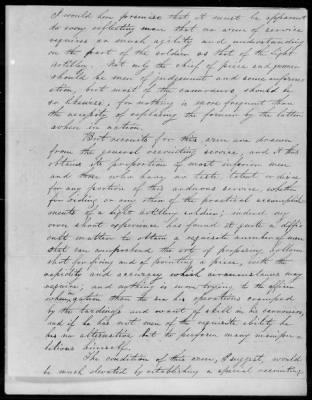 I would here premise that it must be apparent
to every reflecting man that no arm of service
requires so much agility and understanding
on the part of the soldier as that of the light
artillery. Not only the chief of piece and gunner
should be men of judgement and some information,
but most of the cannoneers, should be
so likewise, for nothing is more frequent than
the necessity of replacing the former by the latter
when in action.
But recruits for this arm are drawn
from the general recruiting service, and it thus
obtains its proportion of most inferior men
and those who have no taste, talent or desire
for any portion of this arduous service, whether
for riding or any other of the practical accomplish-
ments of a light artillery soldier; indeed my
own short experience has found it quite a diffi-
cult matter to obtain a requisite number of men
that can comprehend the art of preparing hollow
shot for firing and of pointing a piece, with the
rapidity and accuracy which circumstances may
require; and nothing is more trying to the officer
than to see his operations cramped
by the tardiness and want of skill in his cannoniers,
and if he has not men of the requisite ability he
has no alternative but to perform many
himself.
The condition of this arm, I suggest, would
be much elevated by establishing a special recruiting